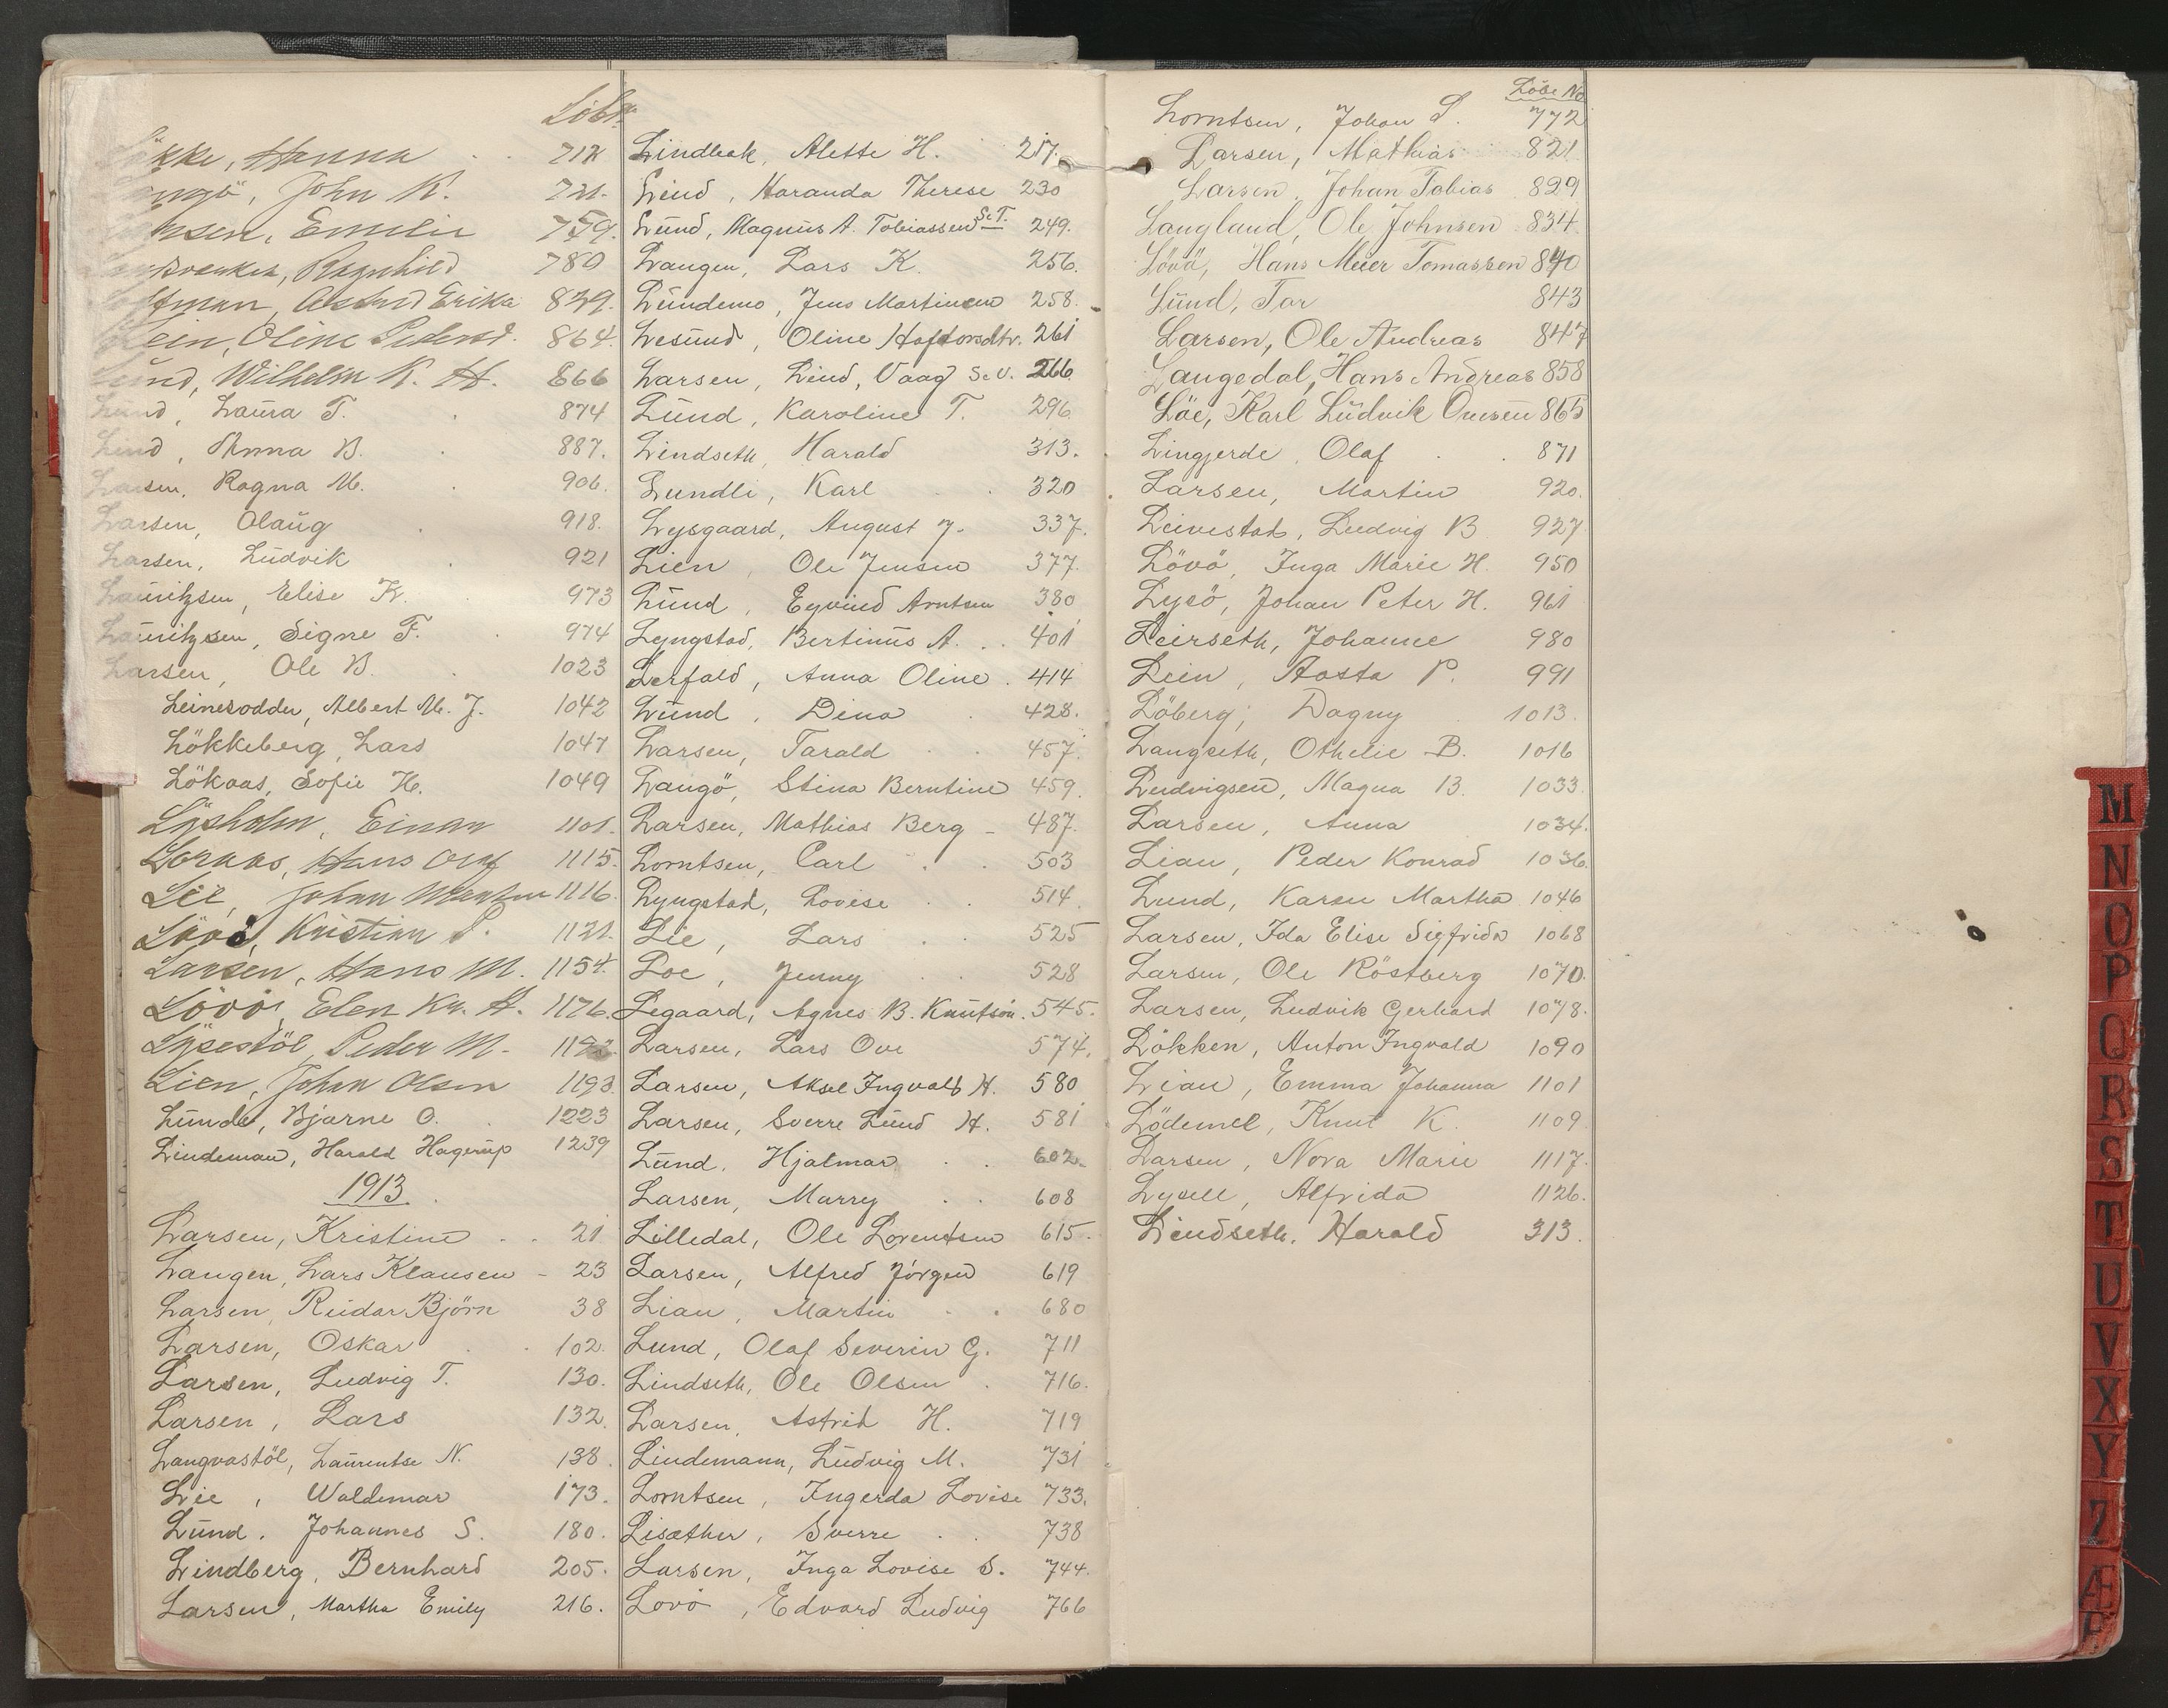 Hanna 712
John K. 721.
Emelie 759.
Ragnhild 789
Erika 839.
Oline Pedersd. 864.
Lund, Wilhelm K. H. 866
Lund, Laura T. 874
Lund, Anna B. 887.
Larsen, Ragna M. 906.
Larsen, Olaug 918.
Larsen, Ludvik 921
Lauritzsen, Elise K. 973
Lauritzsen, Signe F. 974
Larsen, Ole B. 1023
Leinesodden, Albert M. J. 1042
Lökkeberg, Lars 1047
Lökaas, Sofie H. 1049
Lysholm, Einar 1101.
Hans 1115.
Lie, Johan 1116.
Lövö, Kristian P. 1121.
Larsen, Hans M. 1154.
Lövö, Elen Kr. H. 1176.
Lysestöl, Peder M.
Lien, Johan Olsen 1193.
Lunde, Bjarne O. 1223
Lindeman, Harald Hagerup 1239
1913.
Larsen, Kristine 21
Langen, Lars Klausen - 23
Larsen, Reidar Björn 38
Larsen, Oskar 102.
Larsen, Ludvig T. 130.
Larsen, Lars 132.
Langvastöl, Laurentse N. 138.
Lie, Waldemar 173.
Lund, Johannes S. 180.
Lindberg, Bernhard 205.
Larsen, Martha Emily 216.
Lindbak, Alette H. 217.
Lind, Haranda Therese 230
Lund, Magnus A. Tobiassen Se T. 249.
Langen, Lars K. 256.
Lundemo, Jens Martinsen 258.
Lesund, Oline Haftorsdtr. 261
Larsen, Lind, Vaag Se V. 266
Lund, Karoline T. 296.
Lindseth, Harald 313.
Lundli, Karl 320
Lysgaard, August J. 337.
Lien, Ole Jensen 377.
Lund, Eyvind Arntsen 380
Lyngstad, Bertinus A. 401
Lerfald, Anna Oline. 414
Lund, Dina 428.
Larsen, Tarald 457.
Langö, Stina Berntine 459.
Larsen, Mathias Berg - 487.
Lorntsen, Carl 503
Lyngstad, Lovise 514
Lie, Lars 525
Loe, Jenny 528
Legaard, Agnes B. Knutson. 545.
Larsen, Lars Ove 574.
Larsen, Aksel Ingvald H. 580
Larsen, Sverre Lund H. 581
Lund, Hjalmar 602.
Larsen, Marry 608
Lilledal, Ole Lorentsen 615.
Larsen, Alfred Jörgen 619
Lian, Martin 680
Lund, Olaf Severin G. 711
Lindseth, Ole Olsen 716.
Larsen, Astrid H. 719
Lindemann, Ludvig M. 731
Lorntsen, Ingerda Lovise 733.
Lisæther, Sverre 738
Larsen, Inga Lovise S. 744.
Lövö, Edvard Ludvig 766
Löbe No
Lorntsen, Johan L. 772
Larsen, Mathias 821
Larsen, Johan Tobias 829
Langland, Ole Johnsen 834.
Lövö, Hans Meier Tomassen 840
Lund, Tor 843
Larsen, Ole Andreas 847
Langedal, Hans Andreas 858
Löe, Karl Ludvik Ounsen 865
Lingjerde, Olaf 871
Larsen, Martin 920.
Leivestad, Ludvig B 927
Lövö, Inga Marie H. 950
Lysö, Johan Peter H. 961
Leirseth, Johanne 980
Lien, Aasta P. 991
Löberg, Dagny 1013.
Langseth, Othelie B. 1016
Ludvigsen, Magna B. 1033.
Larsen, Anna 1034.
Lian, Peder Konrad 1036.
Lund, Karen Martha 1046
Larsen, Ida Elise Sigfrida 1068
Larsen, Ole Röstberg 1070.
Larsen, Ludvik Gerhard 1078.
Lökken, Anton Ingvald 1090
Lian, Emma Johanna 1101
Lödemel, Knut K. 1109
Larsen, Nora Marie 1117.
Lysell, Alfrida 1126.
Lindseth, Harald 313.
M
N
O
P
Q
R
S
T
U
V
X
Y
Z
Æ